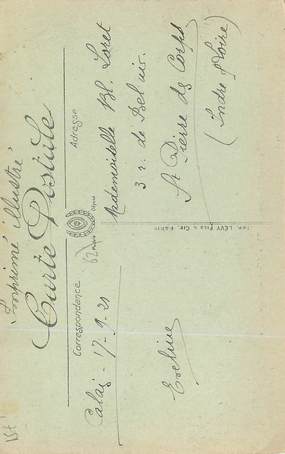 Imprimé illustré
Carte Postale
Correspondance
Adresse
Calais - 17-9-21
Eveline
Mademoiselle Bl. Loret
3 r. de Bel air.
St Pierre des Corps
(Indre & Loire)
IMP. LÉVY FILS & CIE. PARIS